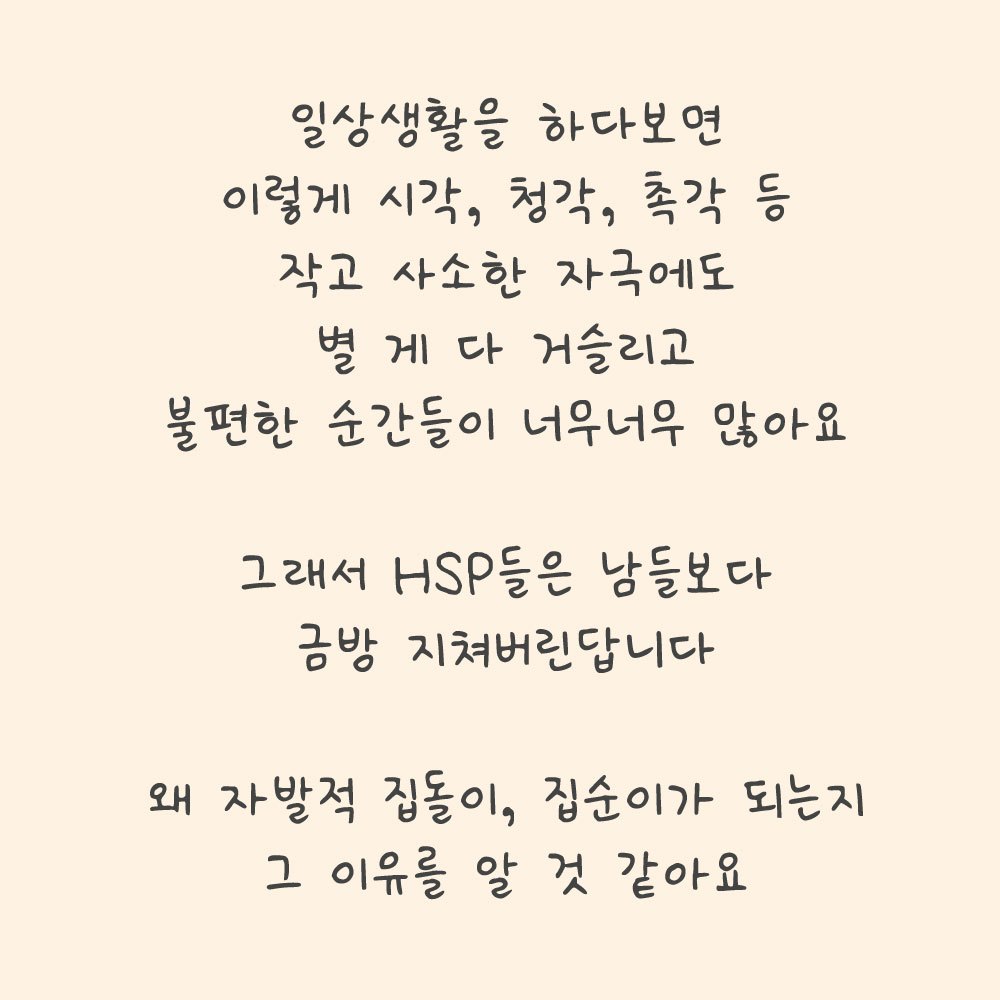 일상생활을 하다보면
이렇게 시각, 청각, 촉각 등
작고 사소한 자극에도
별 게 다 거슬리고
불편한 순간들이 너무너무 많아요
그래서 HSP들은 남들보다
금방 지쳐버린답니다
왜 자발적 집돌이, 집순이가 되는지
그 이유를 알 것 같아요